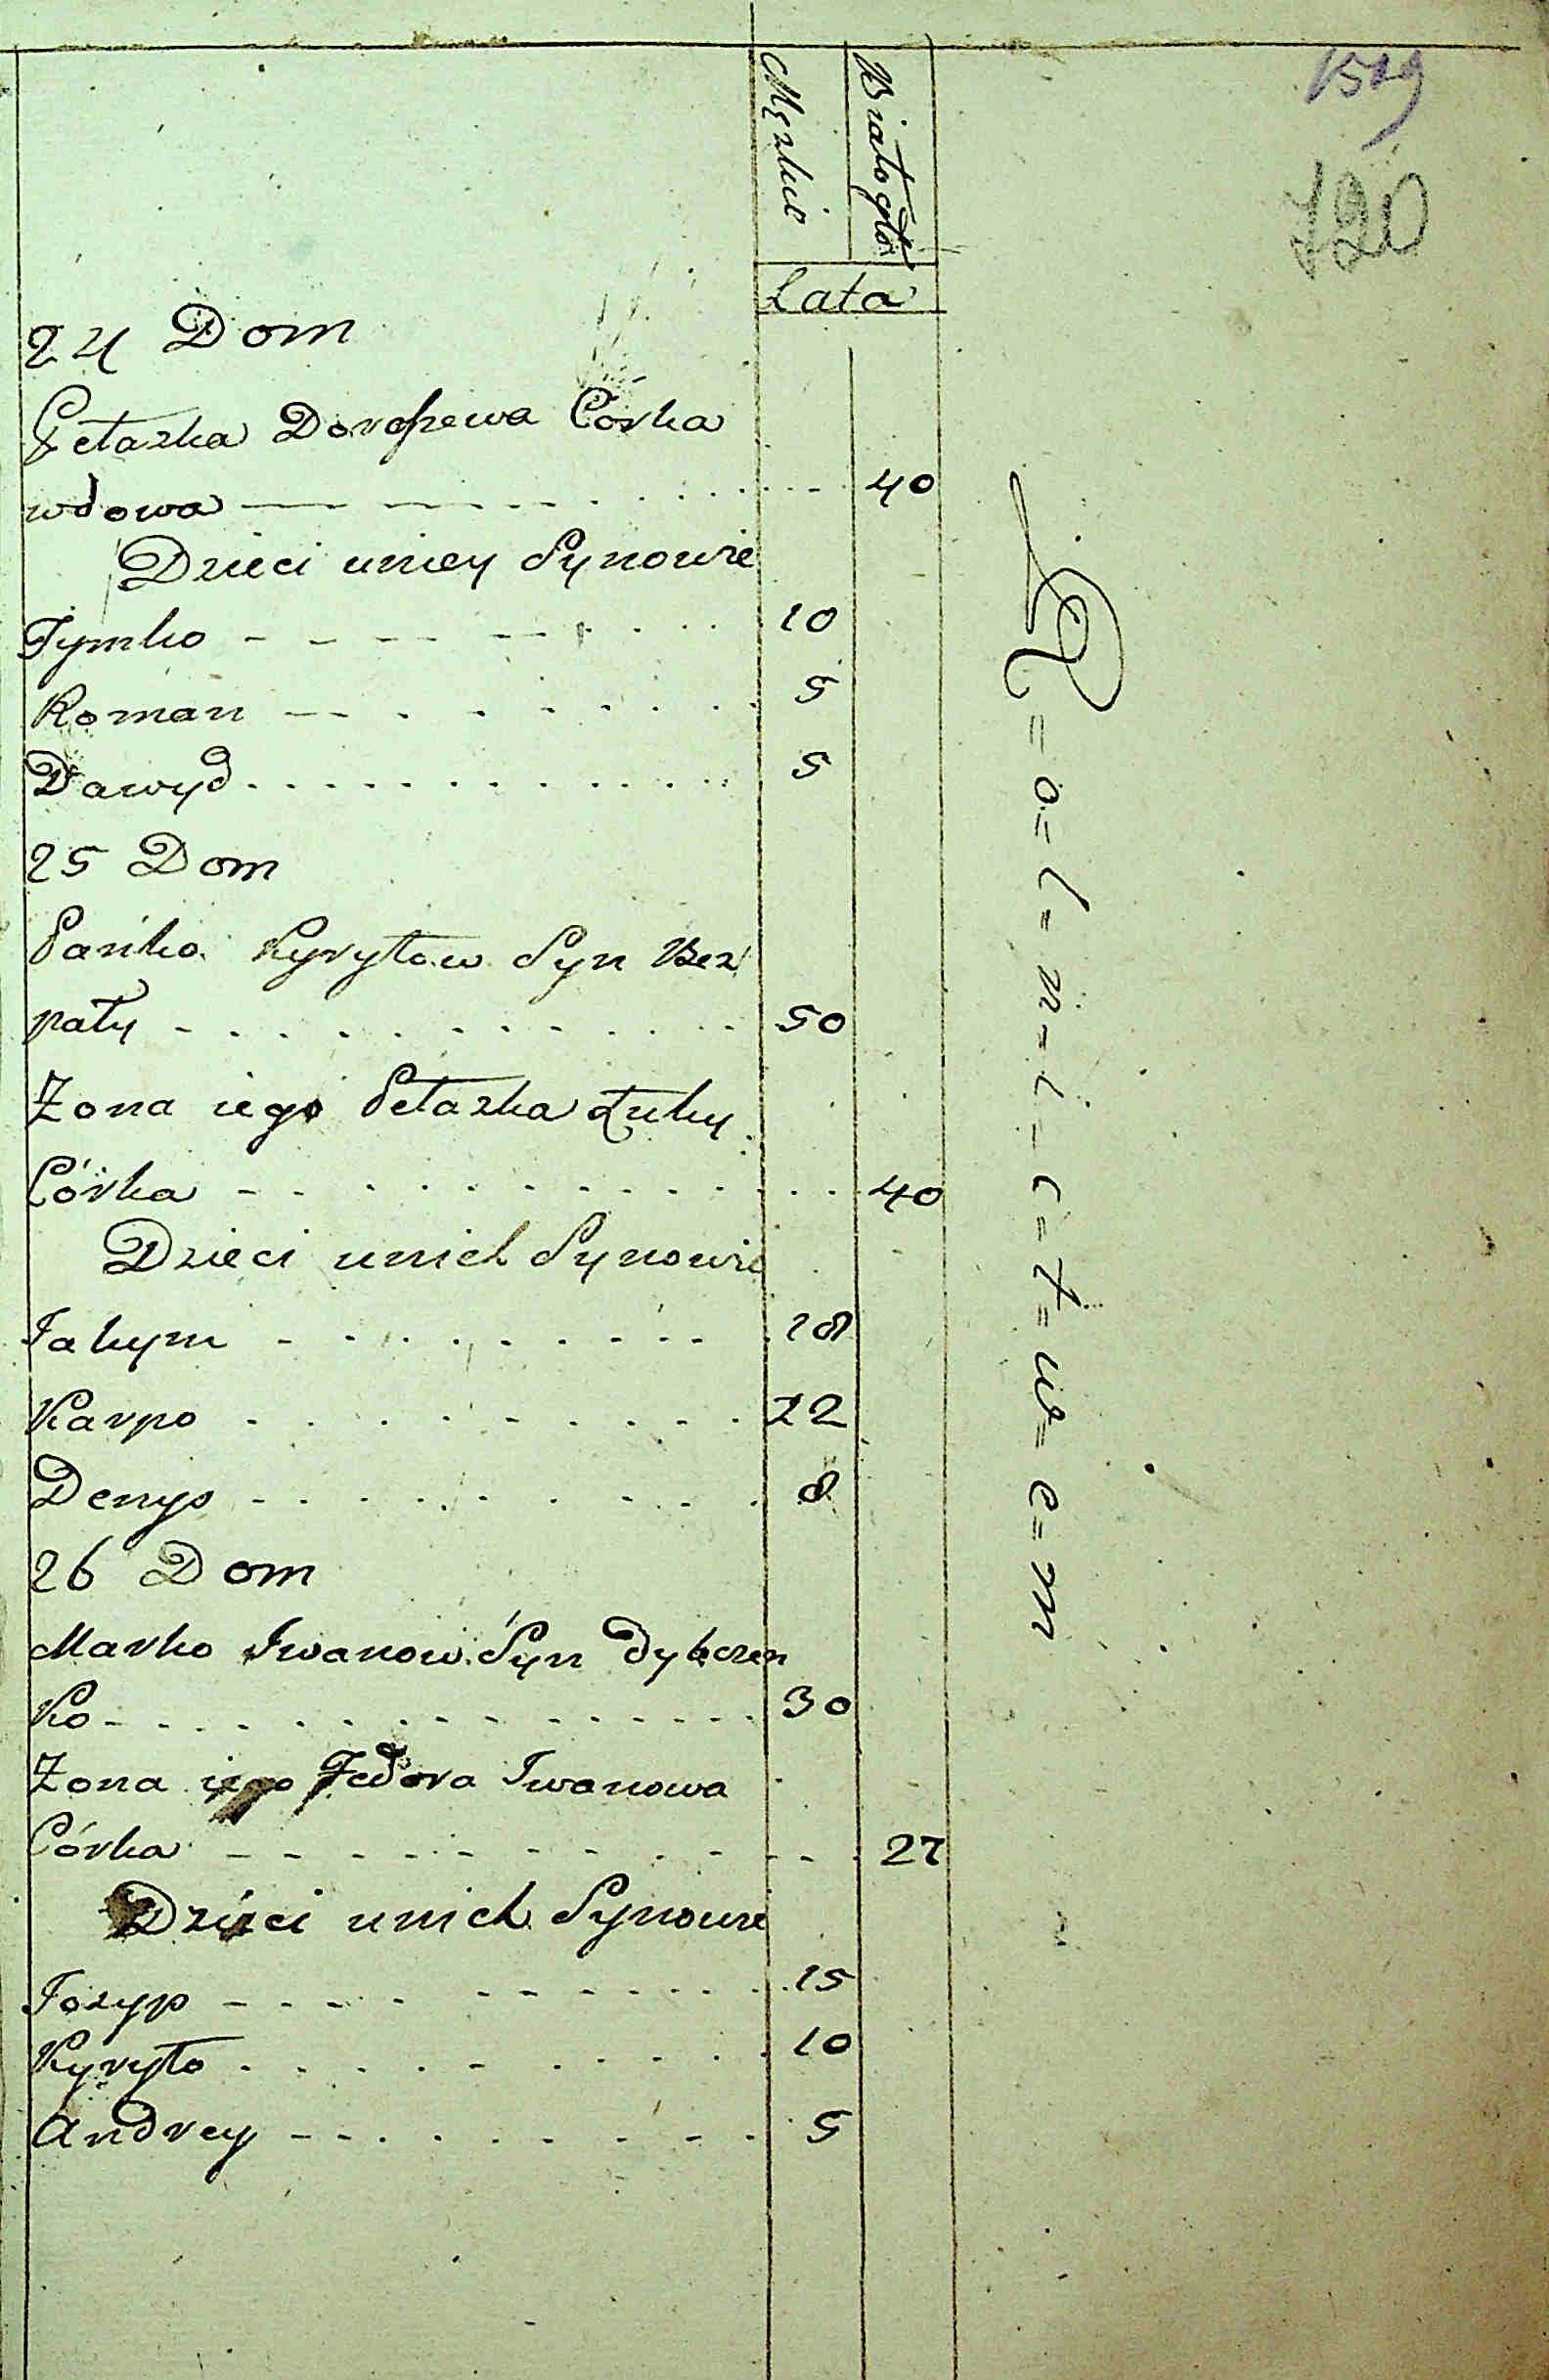 1519
720
Męzkie
Białogło:
Lata
24 Dom
Pełazka Dorofiewa Córka
wdowa 40
Dzieci uniey Synowie
Tymko 10
Roman 5
Dawyd 5
25 Dom
Pańko Kyryłow Syn Bez
pały 50
Zona iego Pełazka Łuky
Córka 40
Dzieci unich Synowie
Jakym 18
Karpo 12
Denys 8
26 Dom
Marko Iwanow Syn Dybczen
ko 30
Zona iego Fedora Iwanowa
Córka 27
Dzieci unich Synowie
Jozyp 15
Kyryło 10
Andrey 5
R=o=l=n=i=c=t=w=e=m